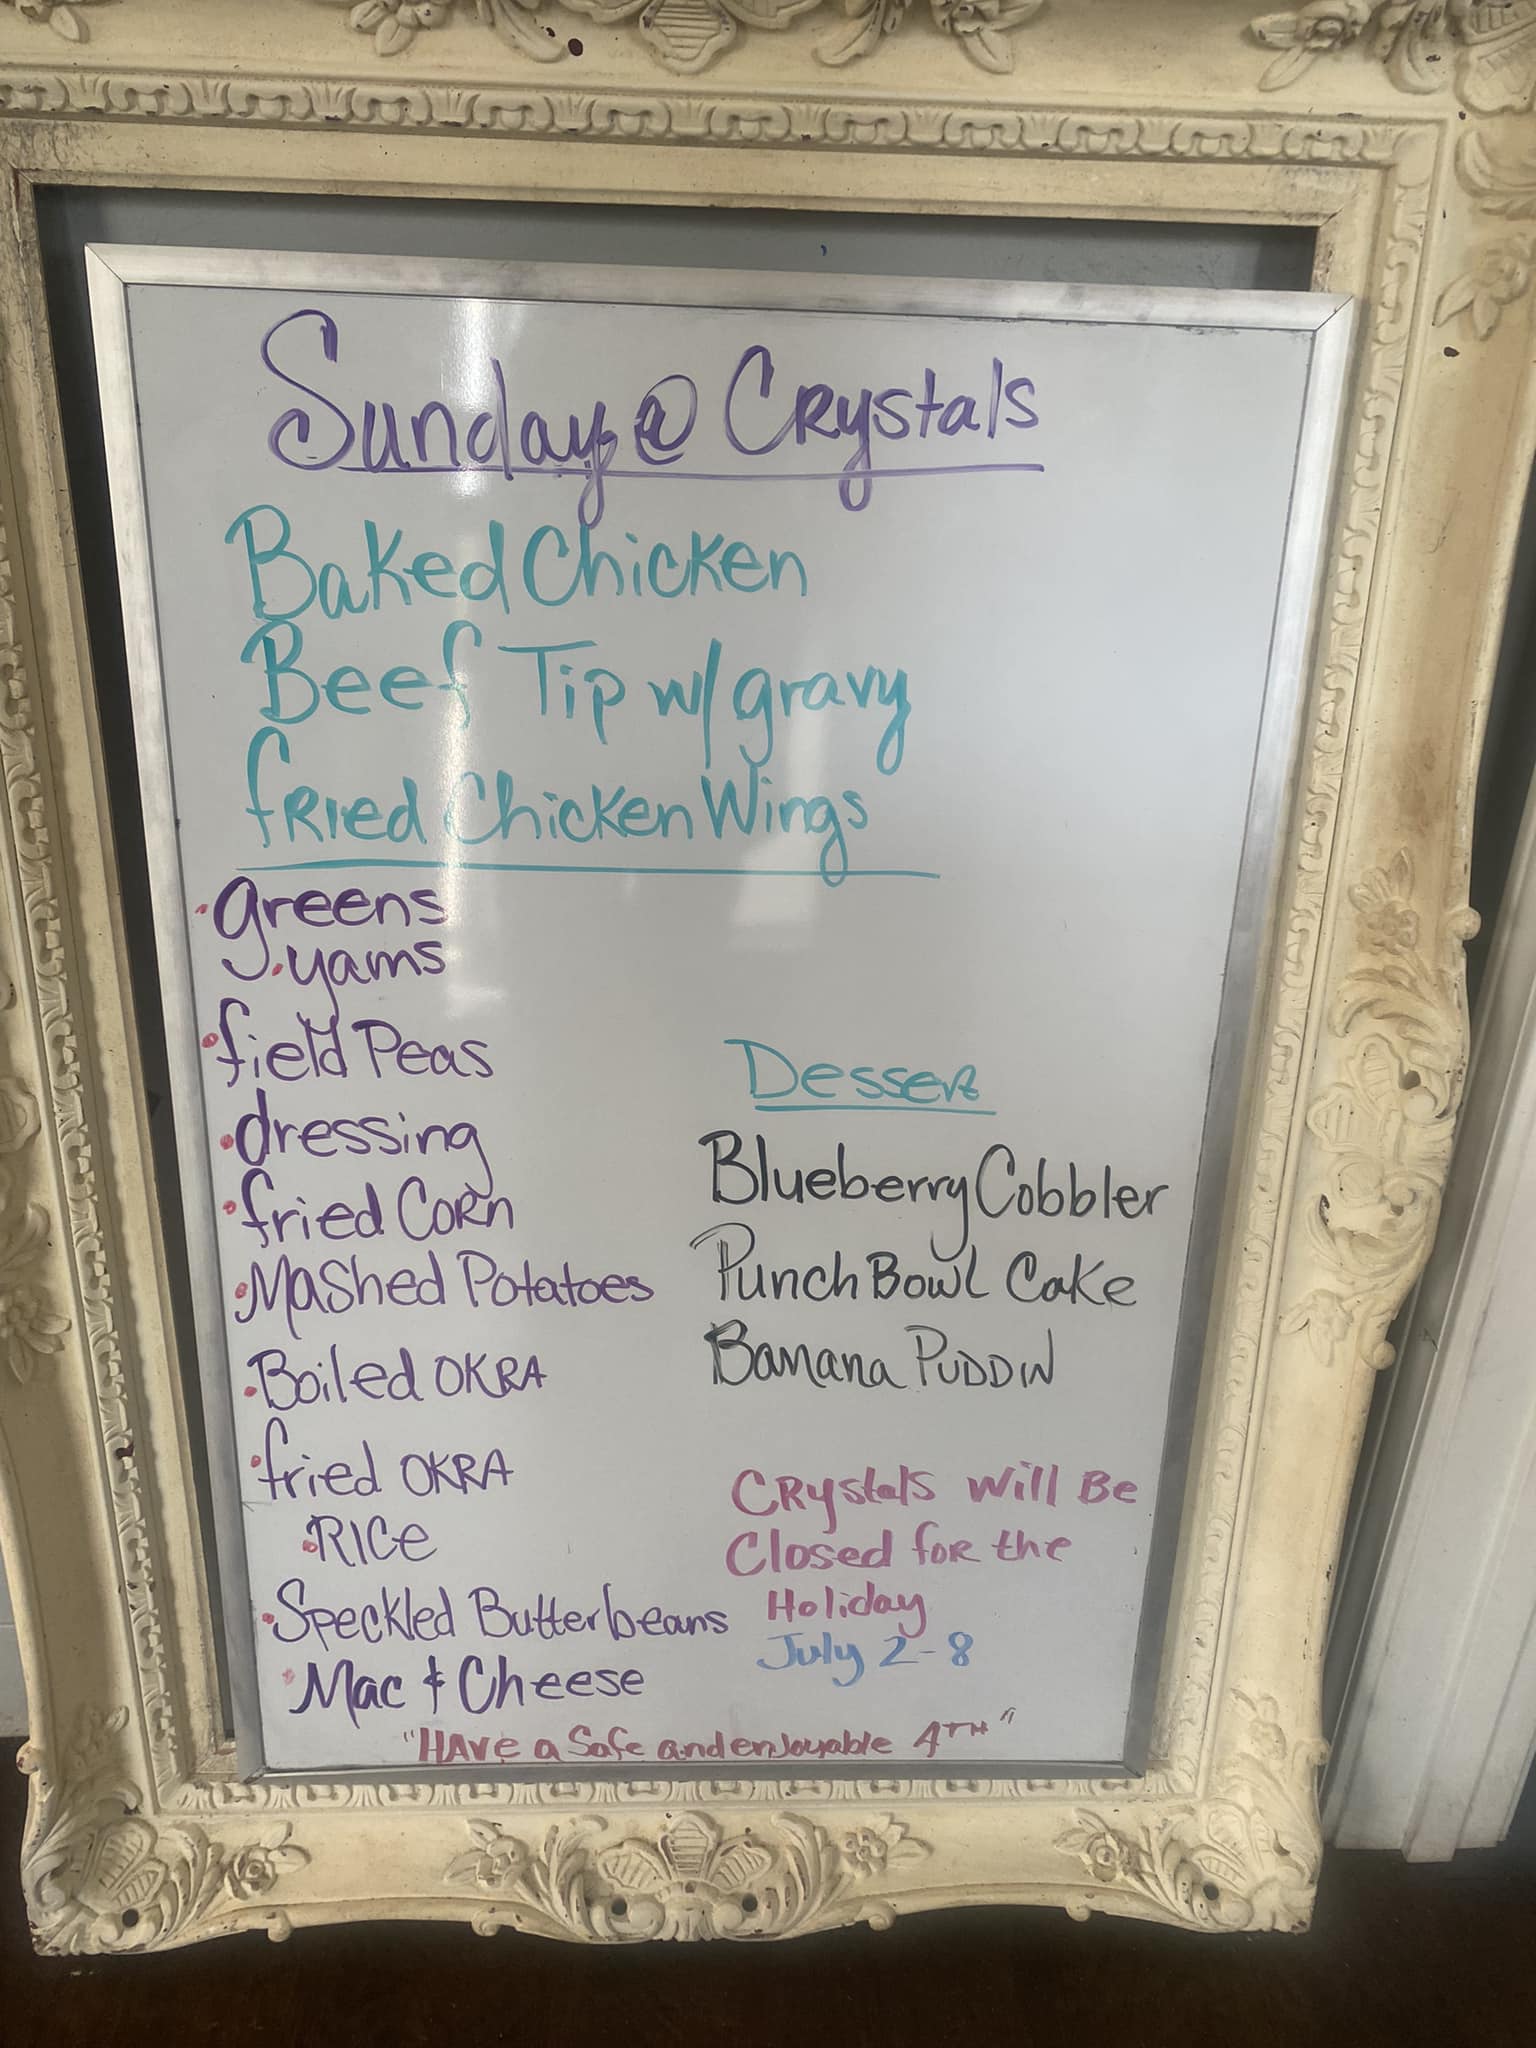 Sunday @ Crystals
Baked Chicken
Beef Tip w/ gravy
fried Chicken Wings
· greens
· yams
· field Peas
· dressing
· fried Corn
· Mashed Potatoes
· Boiled OKRA
· fried OKRA
· RICe
· Speckled Butterbeans
· Mac & Cheese
Dessert
Blueberry Cobbler
Punch Bowl Cake
Banana PUDDIN
CRystals will Be
Closed foR the
Holiday
July 2-8
"HAve a Safe and enjoyable 4TH"